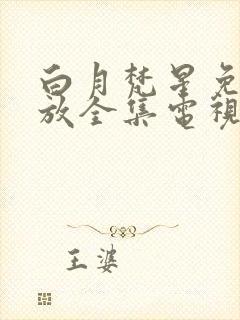 白月梵星免
放全集電視
王婆